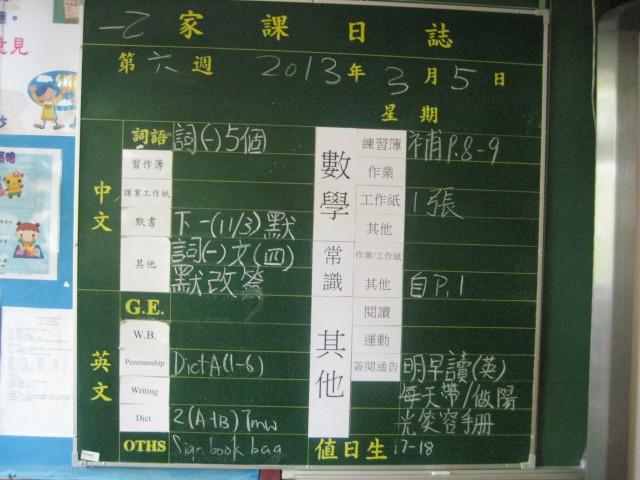 一乙 家課日誌
第六週 2013年3月5日
星期
中文
詞語 詞(一)5個
習作簿
課業工作紙
默書 下一(11/3)默
其他 詞(一)文(四)
默改簽
英文
G.E.
W.B.
Penmanship DictA(1-6)
Writing
Dict. 2(A+B) Tmw
OTHS Sign book bag
數學
練習簿 補P.8-9
作業
工作紙 1張
其他
常識
作業/工作紙
其他 自P.1
其他
閱讀
運動
簽閱通告 明早讀(英)
每天帶/做陽
光笑容手册
值日生 17-18
意見